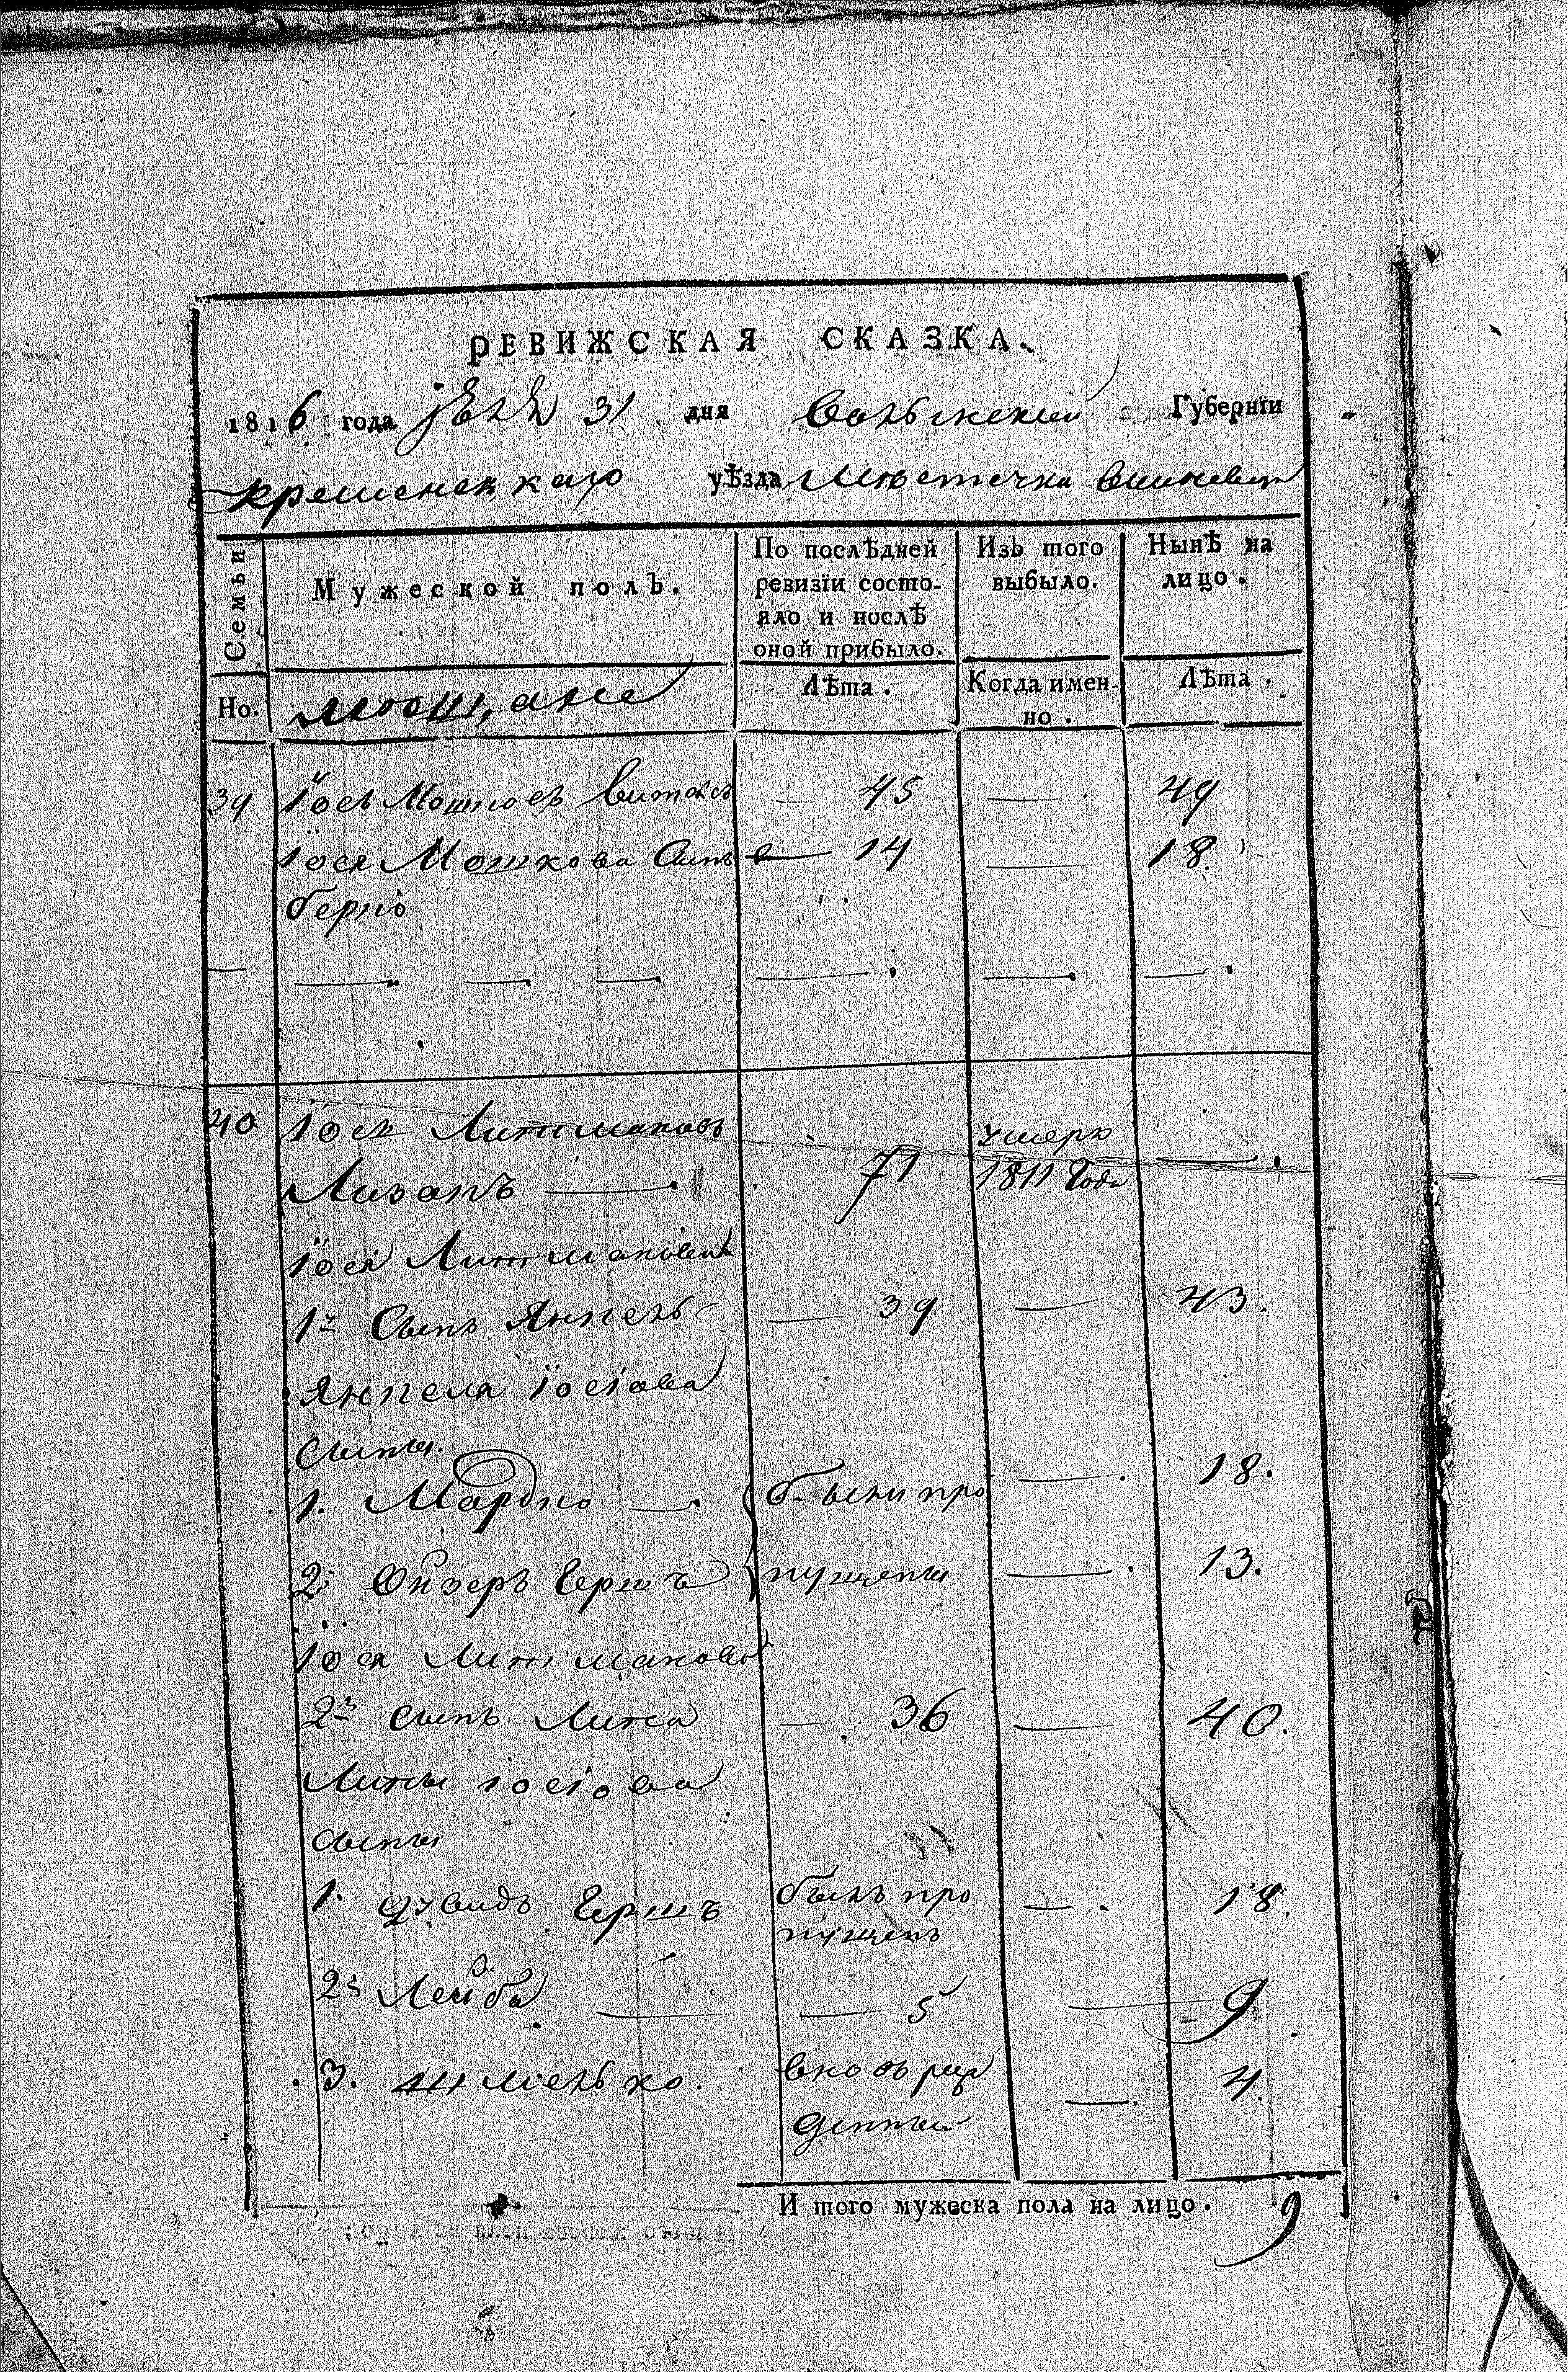 РЕВИЖСКАЯ СКАЗКА.
1816 года 31 дня Волынской Губернїи
кременецкаго уѣзда Местечка Вишневца
Семьи
Мужеской полъ.
По послѣдней ревизїи состо-
яло и послѣ оной прибыло.
Изъ того выбыло.
Нынѣ на лицо.
Но.
мѣщане
Лѣта.
Когда имен-
но.
Лѣта.
39 Іось Мошковъ 45 — 49
Іося Мошкова Сынъ 14 — 18
берко
40 Іось Литмановъ
71 умеръ 1811 Года —
Іося Литманова
1й Сынъ Янкель 39 — 43.
Янкеля Іосіова
Сыны.
1. Мордко — были про — 18.
2. Ойзеръ Гершъ пущены — 13.
Іося Литманова
2й Сынъ Литма 36 — 40.
Іосіова
Сыны
1. Гершъ былъ про
пущенъ — 18.
2й Лейба — 5 — 9
3. Шмелько. вновь рож
денный — 4.
И того мужеска пола на лицо. 9